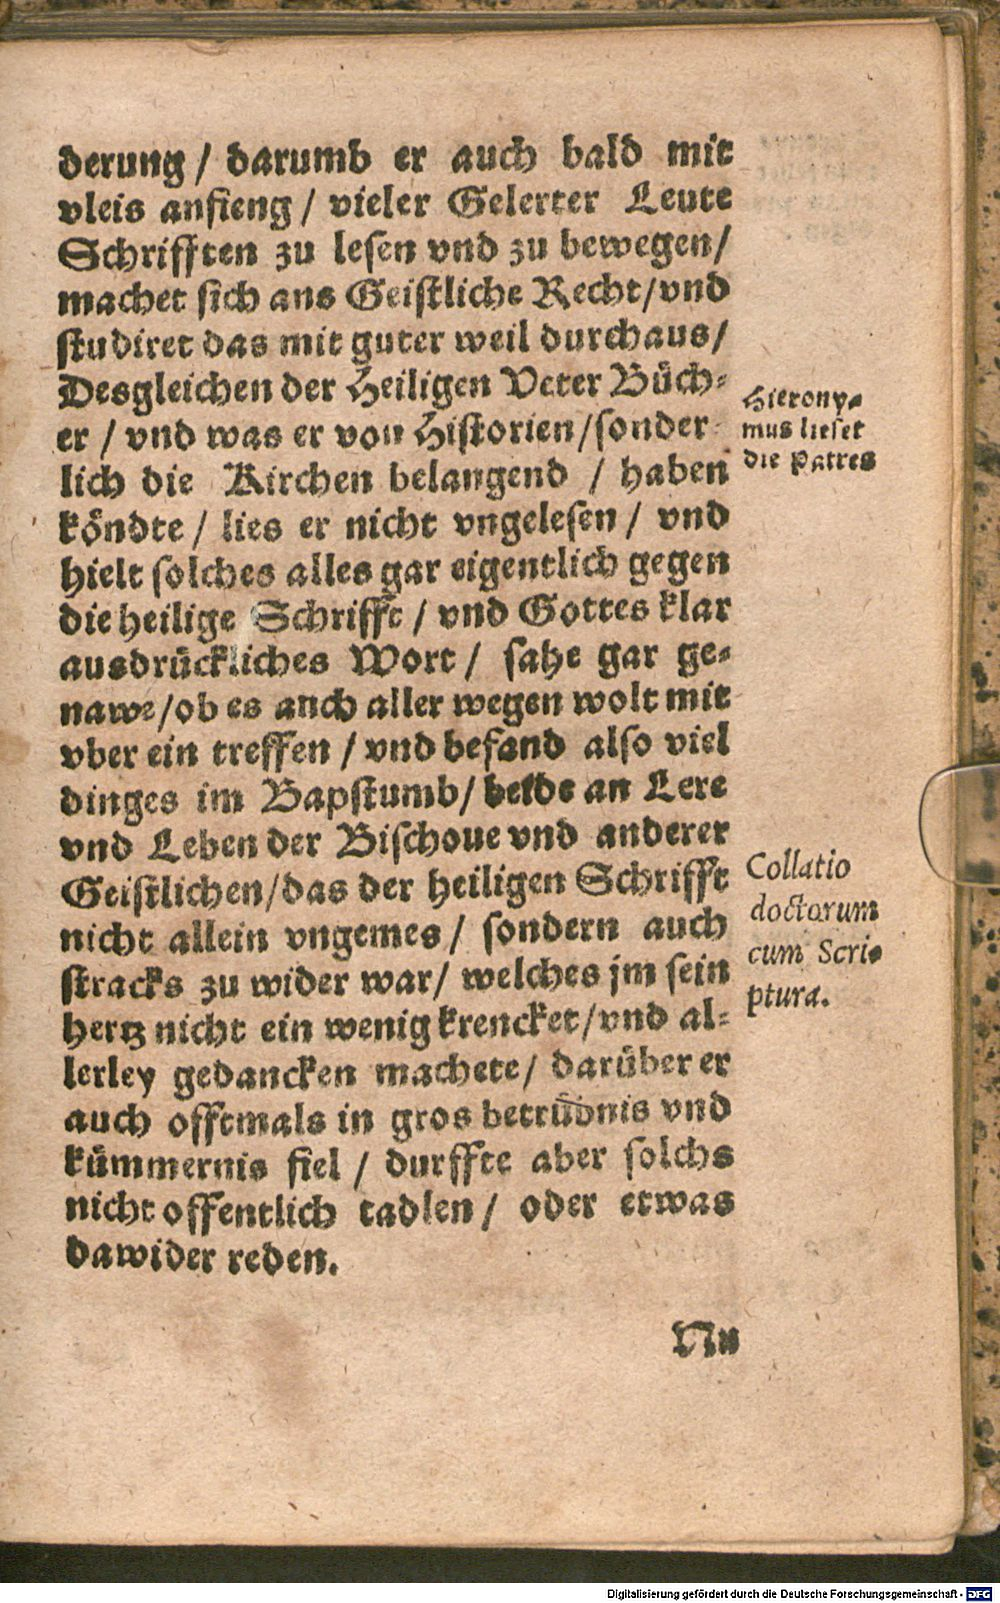 derung / darumb er auch bald mit
vleis anfieng / vieler Gelerter Leute
Schrifften zu lesen vnd zu bewegen /
machet sich ans Geistliche Recht / vnd
studiret das mit guter weil durchaus /
Desgleichen der Heiligen Veter Büch-
er / vnd was er von Historien / sonder-
lich die Kirchen belangend / haben
köndte / lies er nicht vngelesen / vnd
hielt solches alles gar eigentlich gegen
die heilige Schrifft / vnd Gottes klar
ausdrückliches Wort / sahe gar ge-
nawe / ob es auch aller wegen wolt mit
vber ein treffen / vnd befand also viel
dinges im Bapstumb / beide an Lere
vnd Leben der Bischoue vnd anderer
Geistlichen / das der heiligen Schrifft
nicht allein vngemes / sondern auch
stracks zu wider war / welches jm sein
hertz nicht ein wenig krencket / vnd al-
lerley gedancken machete / darüber er
auch offtmals in gros betrübnis vnd
kümmernis fiel / durffte aber solchs
nicht offentlich tadlen / oder etwas
dawider reden.
Nu
Hierony-
mus lieset
die Patres
Collatio
doctorum
cum Scri-
ptura.
Digitalisierung gefördert durch die Deutsche Forschungsgemeinschaft - DFG